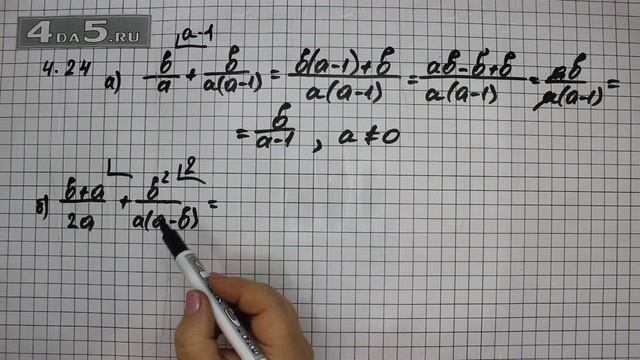 4DA5.RU
4.24 а) b/a + b/a(a-1) = b(a-1)+b/a(a-1) = ab-b+b/a(a-1) = ab/a(a-1) =
a-1
= b/a-1 , a ≠ 0
б) b+a/2a + b²/a(a-b) =
2